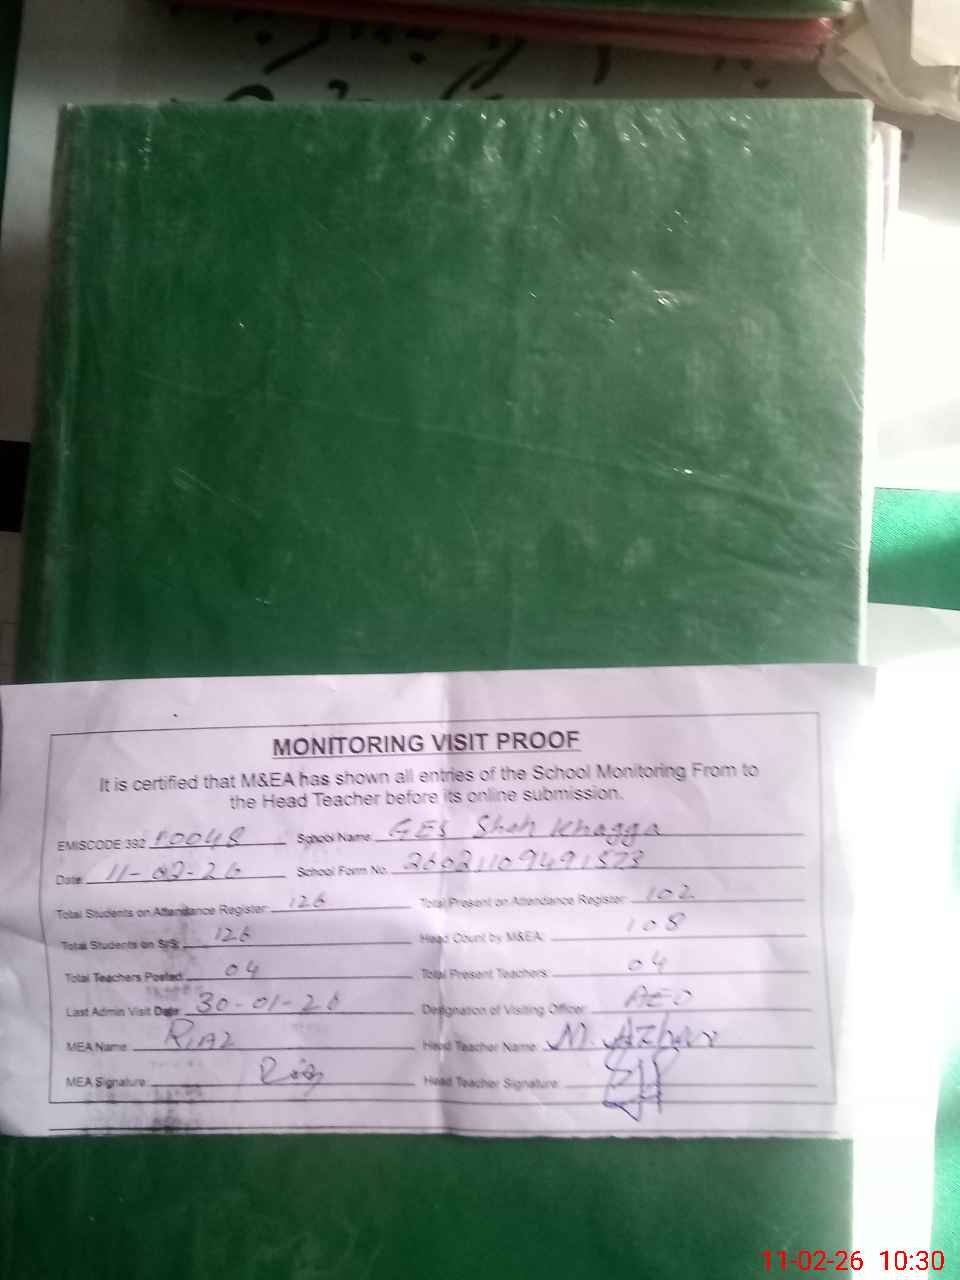 MONITORING VISIT PROOF
It is certified that M&EA has shown all entries of the School Monitoring From to
the Head Teacher before its online submission.
EMISCODE 392 10048 School Name: GES Shah Khagga
Date: 11-02-26 School Form No. 26021109491523
Total Students on Attendance Register: 126 Total Present on Attendance Register: 102
Total Students on SIS: 126 Head Count by M&EA: 108
Total Teachers Posted: 04 Total Present Teachers: 04
Last Admin Visit Date: 30-01-26 Designation of Visiting Officer: AEO
MEA Name: Riaz Head Teacher Name: M. Azhar
MEA Signature: Riaz Head Teacher Signature:
11-02-26 10:30